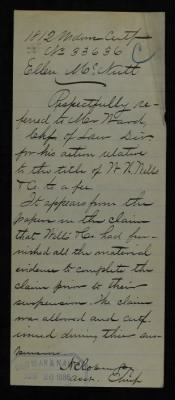 1812 Widow Certf
No 33636
C
Ellen McNutt
Respectfully re-
ferred to Mr Ward,
Chf of Law Div
for his action relative
to the title of W. N. Wells
& Co. to a fee.
It appears from the
papers in the claim
that Wells & Co. had fur-
nished all the material
evidence to complete the
claim prior to their
suspension. The claim
was allowed and certf
issued during their sus-
pension.
Asst. Chief